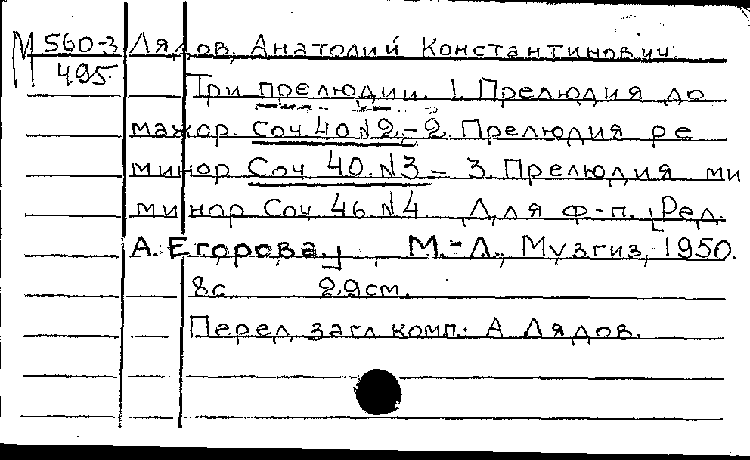 М 560-3 Лядов, Анатолий Константинович.
495
Три прелюдии. 1. Прелюдия до
мажор. Соч. 40 №2.- 2. Прелюдия ре
минор Соч. 40. №3 - 3. Прелюдия ми
минор Соч. 46. №4. Для ф-п. [Ред.
А. Егорова.] М.-Л., Музгиз, 1950.
8с 29см.
Перед загл. комп.: А Лядов.